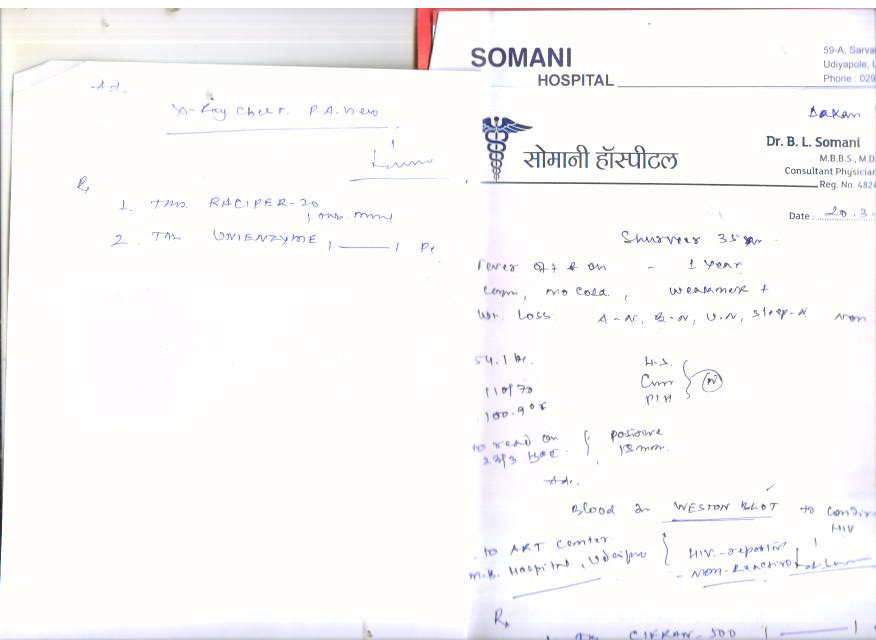 Ad.
X-Ray Chest. P.A. View
R,
1. Tab. RACIPER-20
2. Tab UNIENZYME 1 — 1
SOMANI
HOSPITAL
59-A, Sarva
Udiyapole, U
Phone : 029
सोमानी हॉस्पीटल
Dr. B. L. Somani
M.B.B.S., M.D
Consultant Physician
Reg. No. 482
Date : 20.3.
Shurveer 35
Fever off & on - 1 Year
no cold, weakness +
Wt. Loss. A-N, B-N, U-N, Sleep-N Non
54.1
110/70
100.9°F
H.S.
P/A
N
to read on
23/3
positive
18 mm.
Ad.
Blood for WESTON BLOT to confir
HIV
to ART center
M.B. Hospital, Udaipur
HIV-
- Non-Reactive
R,
500 1 — 1